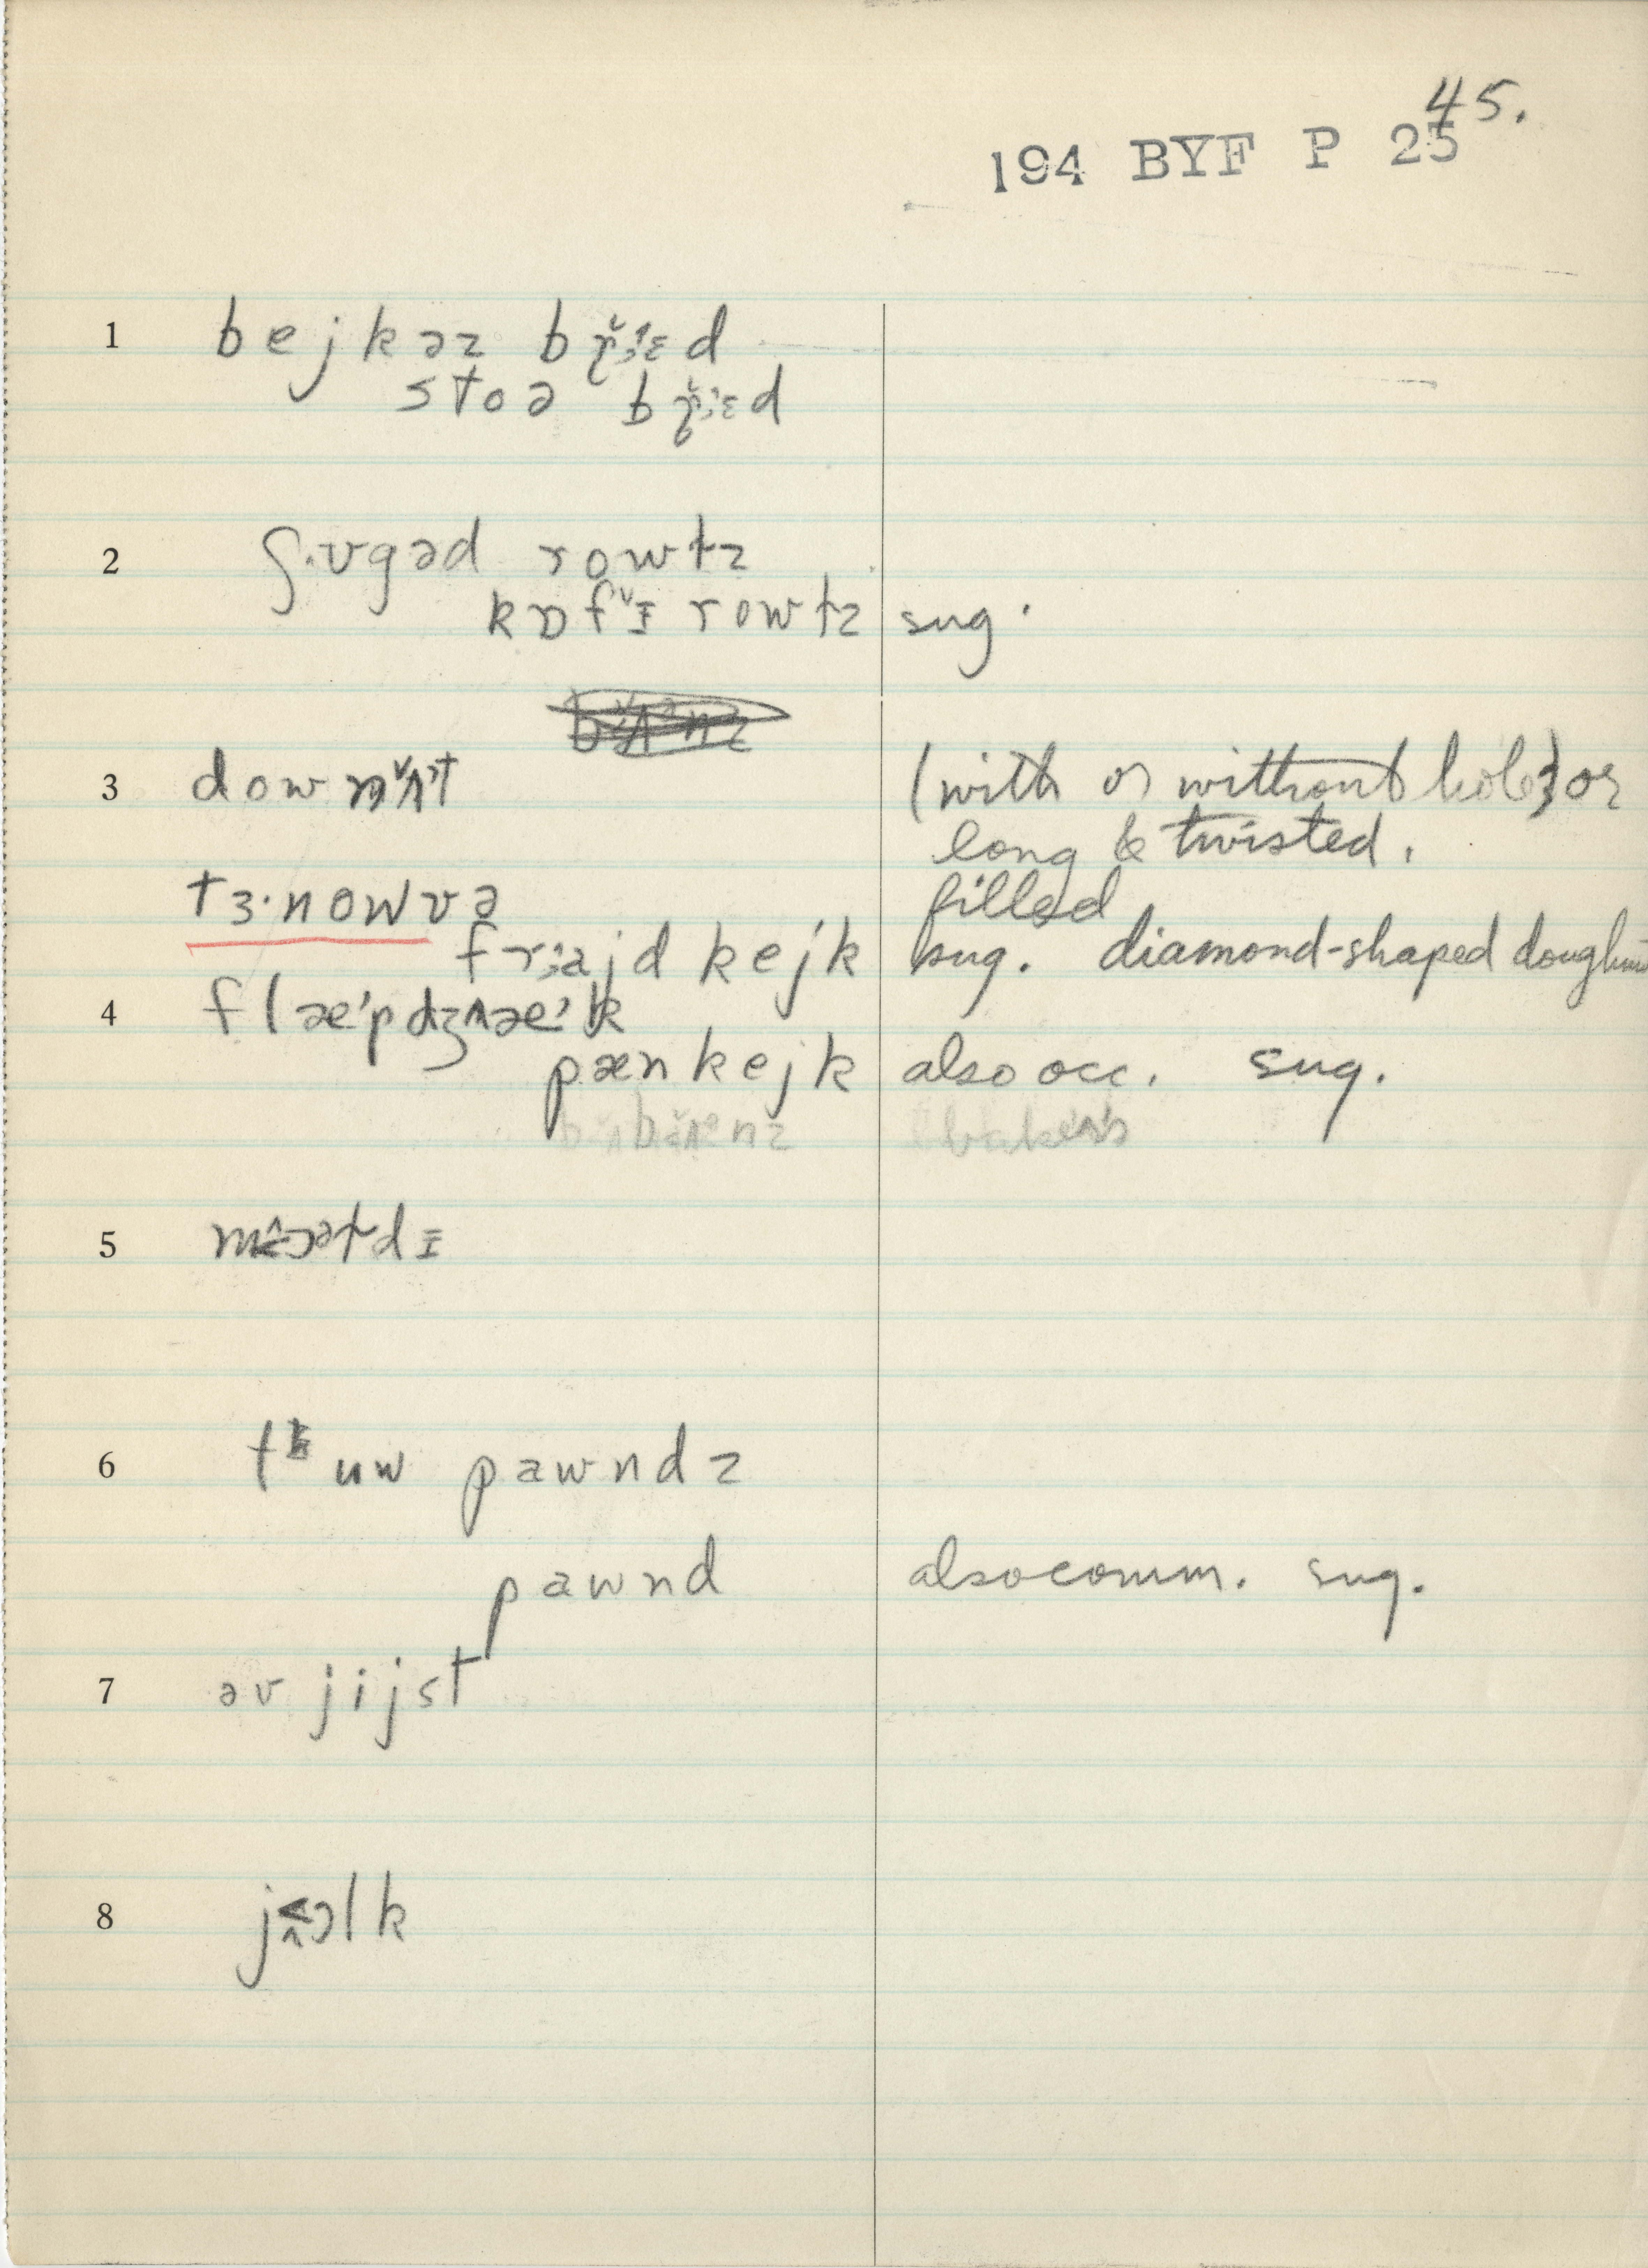 45.
194 BYF P 25
1 bejkəz bɽ̌ɛd
stoə bɽ̌ɛd
2 ʃ.ʊgəd rowɫz
kɒfɪ̌ rowɫz sug.
3 downʌ̌t (with or without hole) or
long & twisted.
tɜ·nowvə filled
fr;ajd kejk sug. diamond-shaped doughnu
4 flæ'pdʒæ'k
pænkejk also occ. sug.
bakers
5
6 tʰuw pawndz
pawnd also comm. sug.
7 əv jijst
8 jɔlk